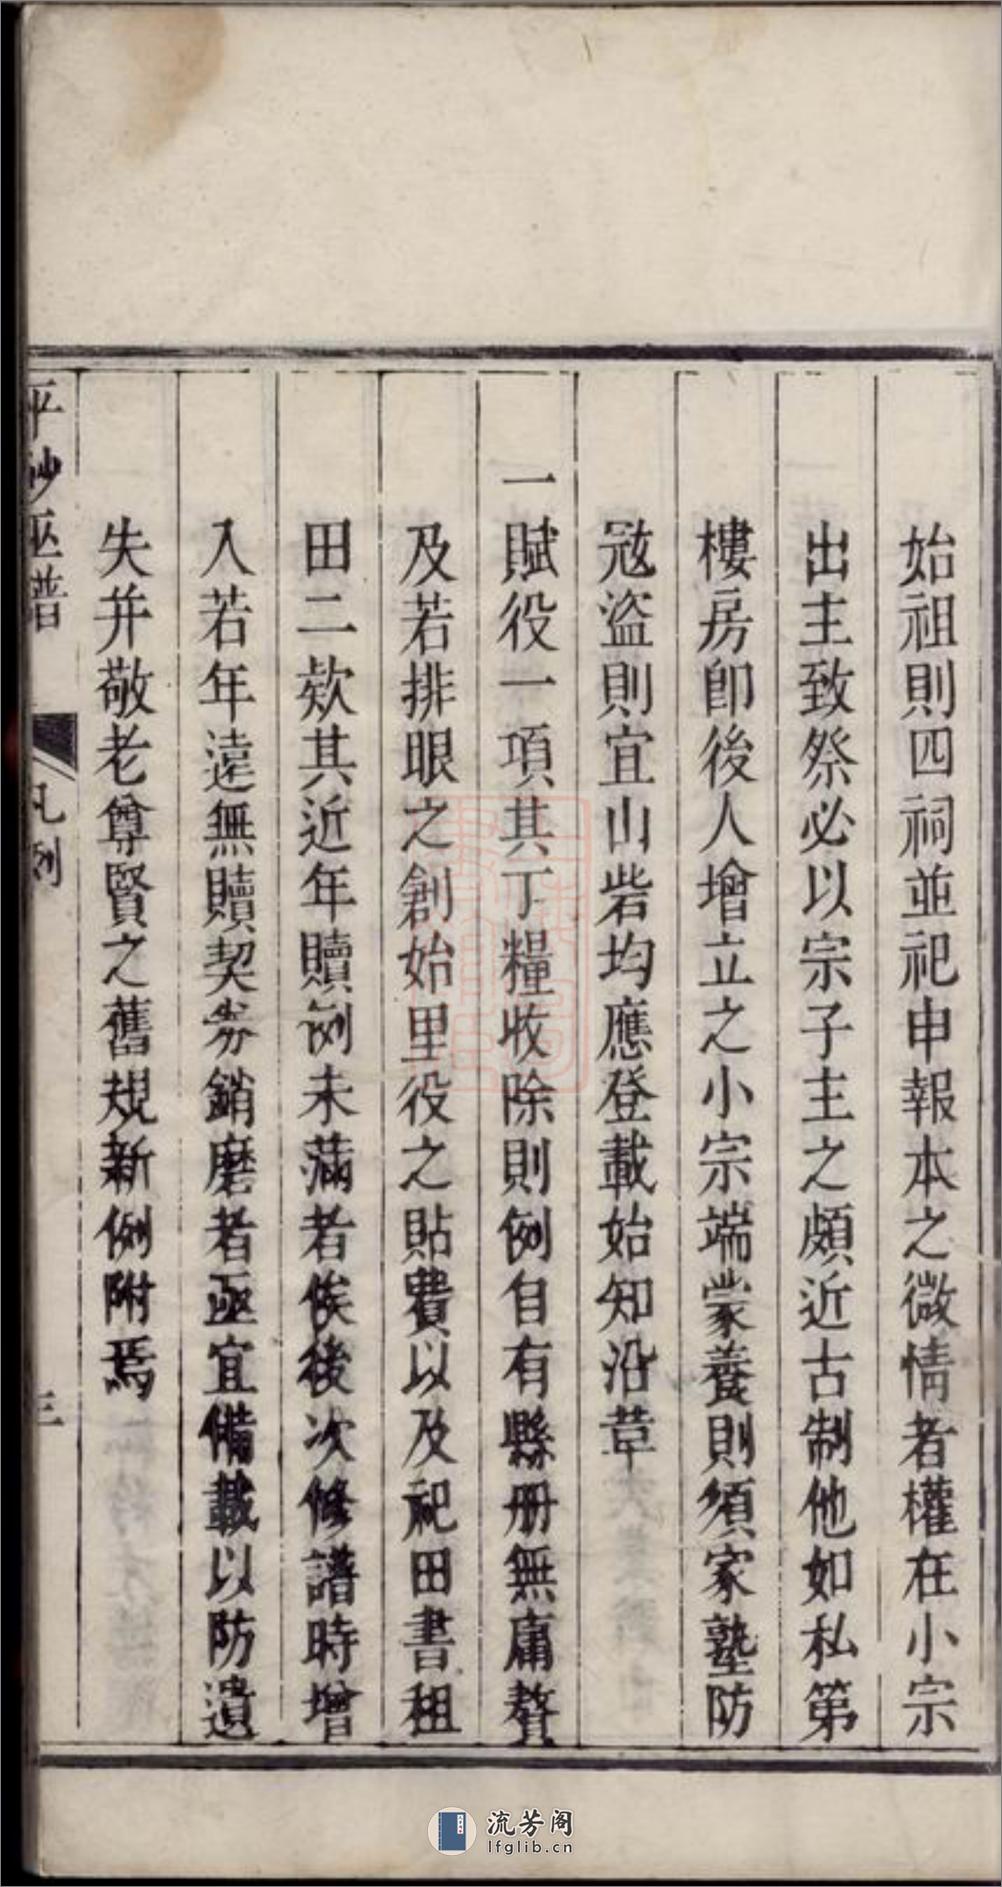 始祖則四祠並祀申報本之微情者權在小宗
出主致祭必以宗子主之頗近古制他如私第
樓房卽後人增立之小宗端蒙養則須家塾防
宼盜則宜山砦均應登載始知沿革
一賦役一項其丁糧收除則例自有縣册無庸贅
及若排眼之創始里役之貼費以及祀田書租
田二欵其近年贖例未滿者俟後次修譜時增
入若年遠無贖契劵銷磨者亟宜備載以防遺
失并敬老尊賢之舊規新例附焉
平砂巫譜
凡例
三
流芳阁
lfglib.cn